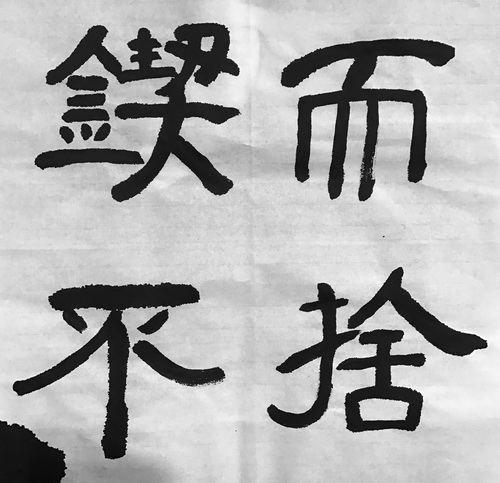 鍥而
不捨